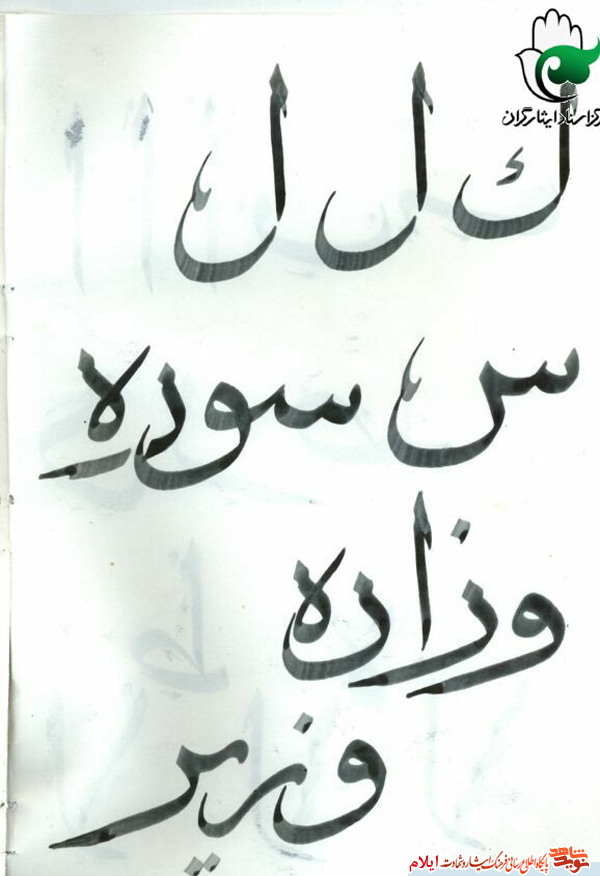 رکز اسناد ایثارگران
ك ل ل
س سوره
وزاره
وزير
نوید شاهد پایگاه اطلاع رسانی فرهنگ ایثار و شهادت ایلام